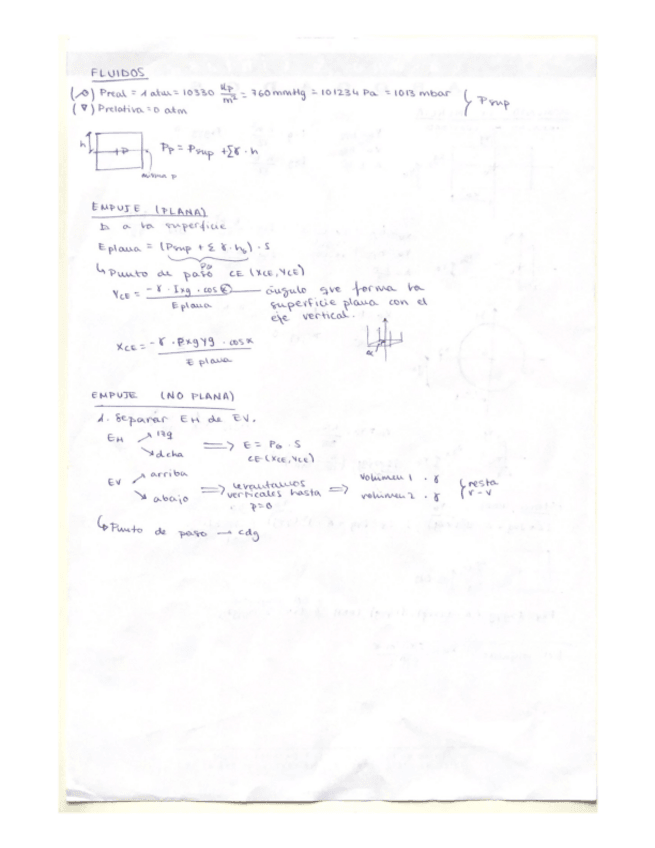 FLUIDOS
Preal = 1 atm = 10330 kp/m² = 760 mmHg = 101234 Pa = 1013 mbar
Prelativa = 0 atm
Psup
h
P
Pp = Psup + Σγ · h
EMPUJE (PLANA)
a la superficie
Eplana = (Psup + Σ γ · hG) · S
PG
↳ Punto de paso CE (XCE, YCE)
YCE = -γ · Ixg · cos α / Eplana
ángulo que forma la
superficie plana con el
eje vertical.
XCE = -γ · Pxgyg · cos α / Eplana
α
EMPUJE (NO PLANA)
1. Separar EH de EV.
EH izq
dcha
⟹ E = PG · S
CE (XCE, YCE)
EV arriba
abajo
⟹ levantamos
verticales hasta
p=0
⟹ volumen 1 · γ
volumen 2 · γ
resta
v - v
↳ Punto de paso → cdg